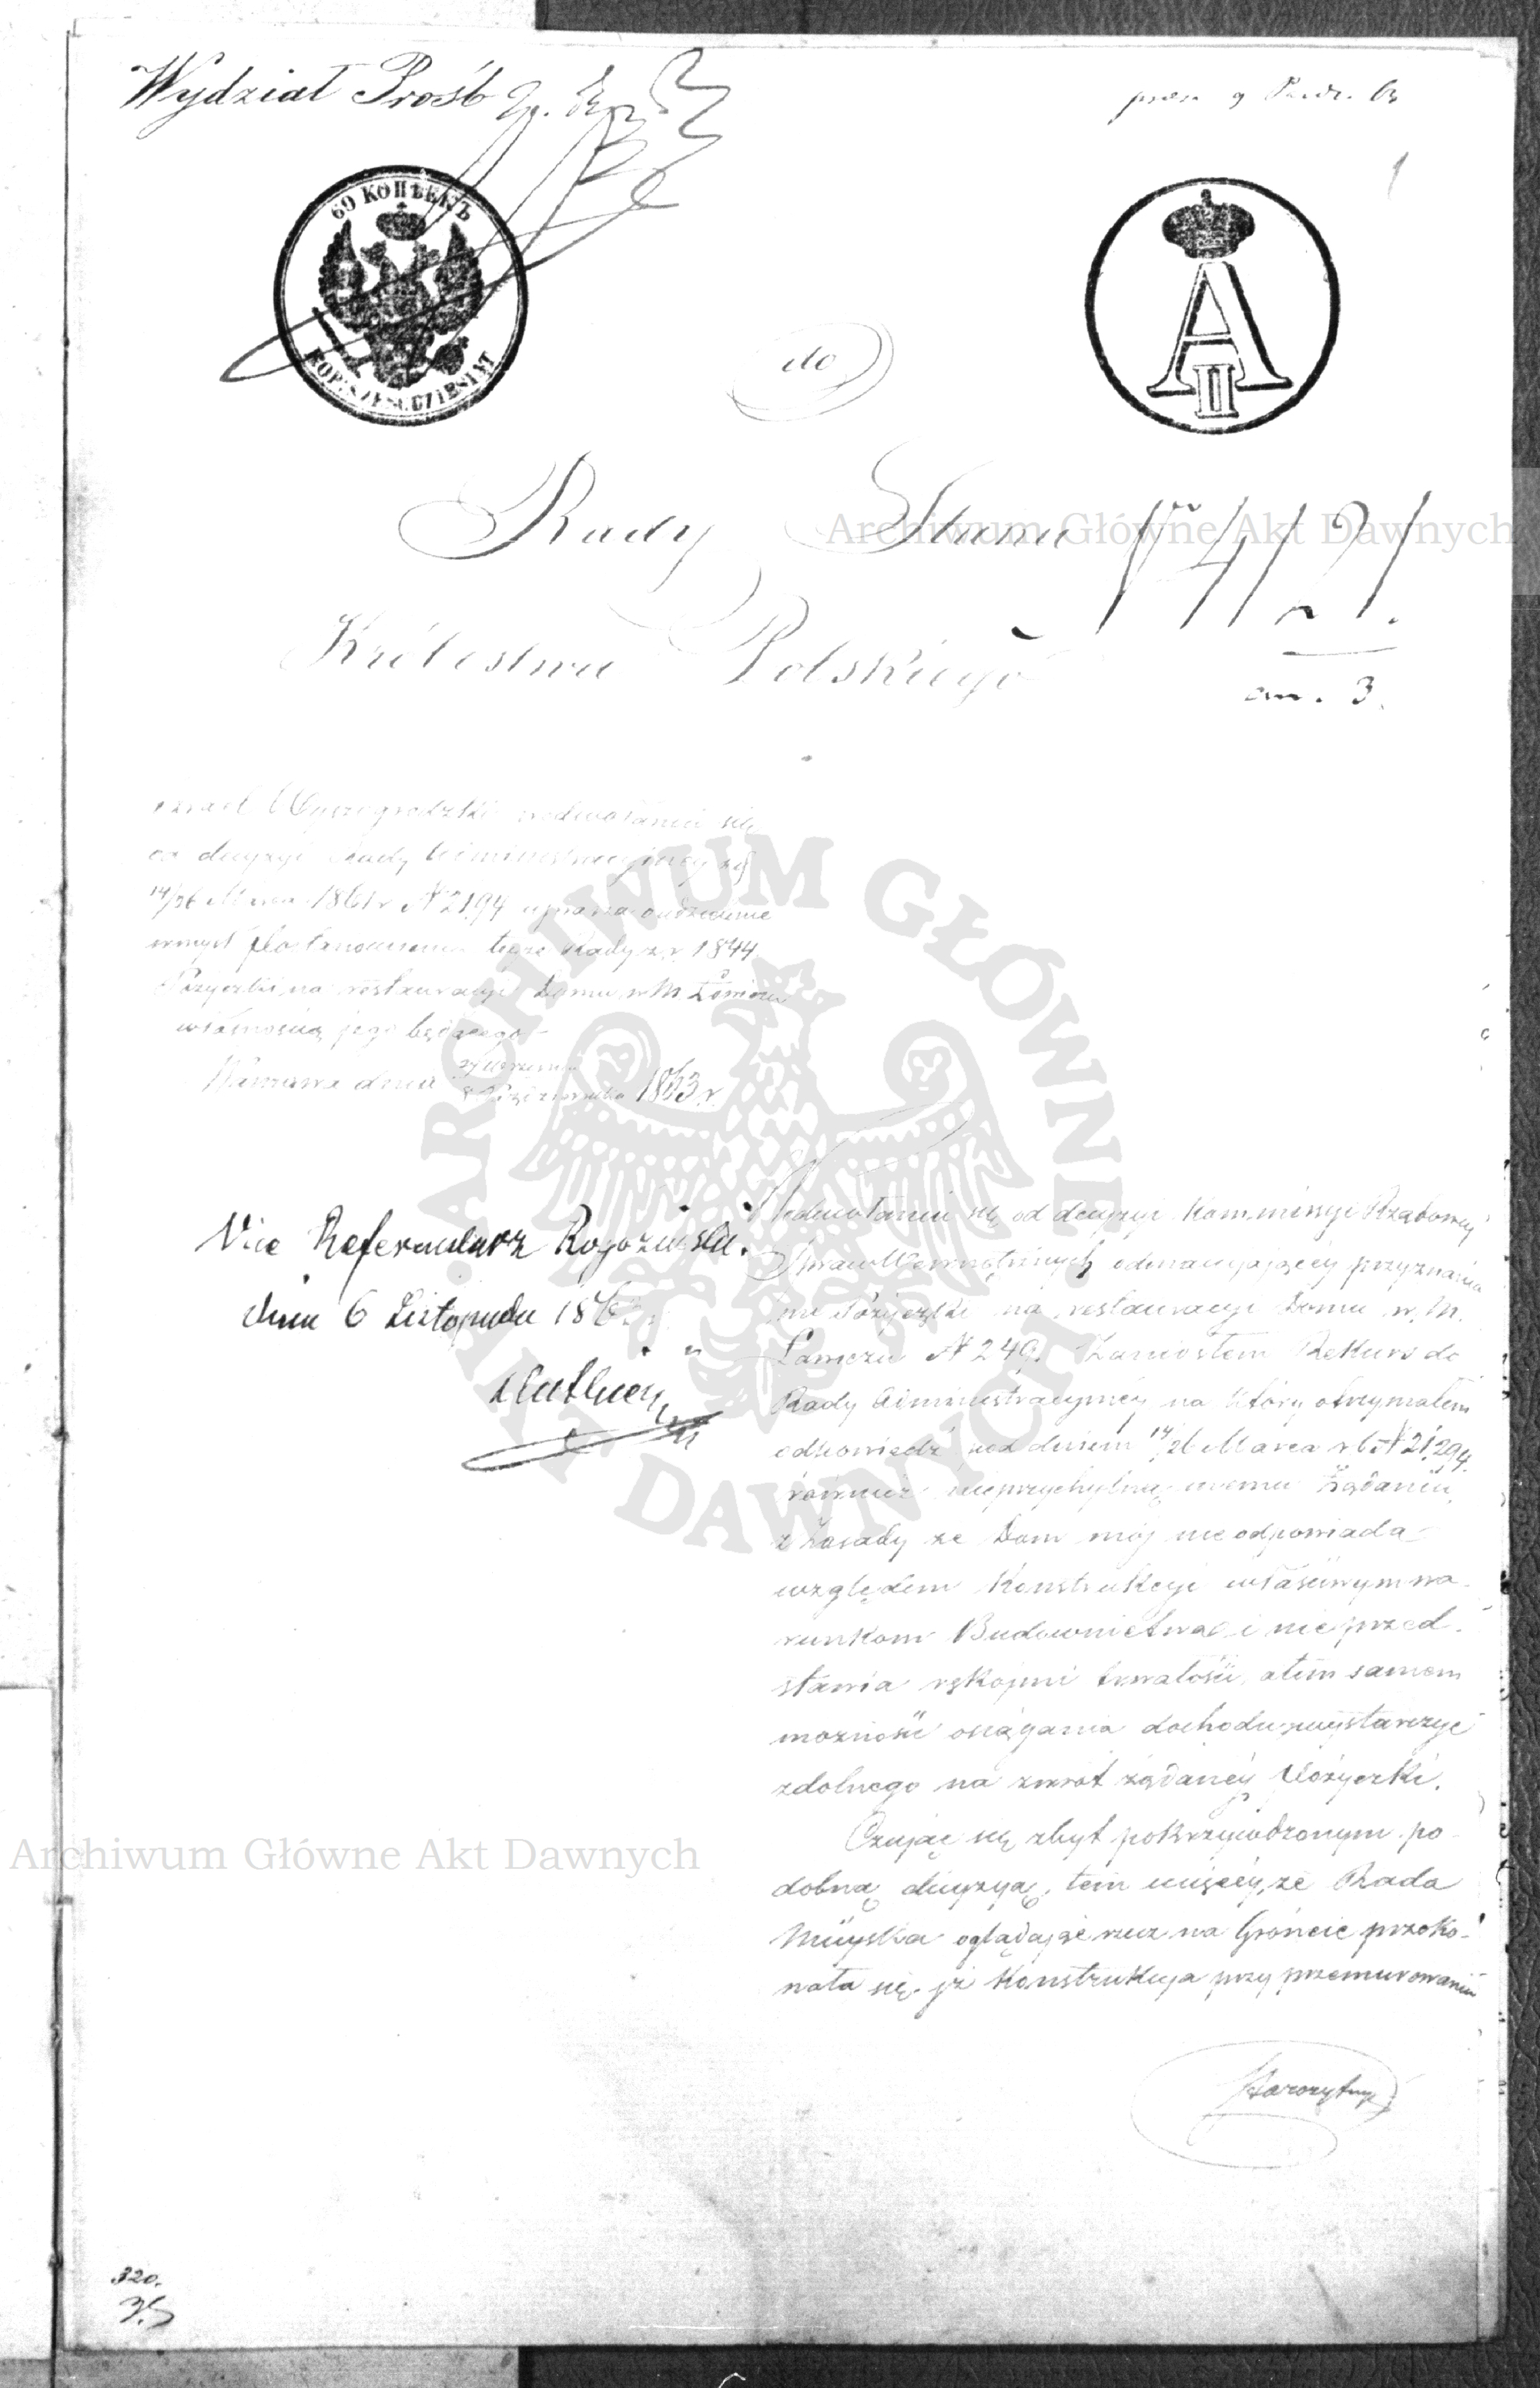 Wydział Próśb
60 КОПѢЕКЪ
KOP. SZEŚĆDZIESIĄT
A II
do
Rady Stanu
Królestwa Polskiego
№ 4121.
an. 3.
Wyszogrodzki w odwołaniu się
od decyzyi Rady Administracyjney z d.
14/26 Marca 1861 r. № 21,294 uprasza o udzielenie
w myśl Postanowienia tejże Rady z r. 1844
Pożyczki na restauracyi Domu w M. Łowiczu
własnością jego będącego
Warszawa dnia 27 Września
9 Października 1863 r.
Vice Referendarz Rogoziński.
dnia 6 Listopada 186
W odwołaniu się od decyzyi Kommissyi Rządowej
Spraw Wewnętrznych odmawiającéj przyznania
mi Pożyczki na restauracyi Domu w M.
Łowiczu № 249. Zaniosłem Rekurs do
Rady Administracyjnéj na który otrzymałem
odpowiedź pod dniem 14/26 Marca r. b. № 21,294
również nieprzychylną memu Żądaniu,
z zasady że Dom mój nie odpowiada
względem Konstrukcyi właściwym wa-
runkom Budownictwa i nie przed-
stawia rękojmi trwałości, a tem samem
możność osiągania dochodu wystarczyć
zdolnego na zwrot żądanéj Pożyczki.
Czując się zbyt pokrzywdzonym po-
dobną decyzyą, tem więcéj, że Rada
Miejska oglądając rzecz na Gróncie przeko-
nała się iż Konstrukcya przy przemurowaniu
320.
Archiwum Główne Akt Dawnych
Archiwum Główne Akt Dawnych
ARCHIWUM GŁÓWNE AKT DAWNYCH